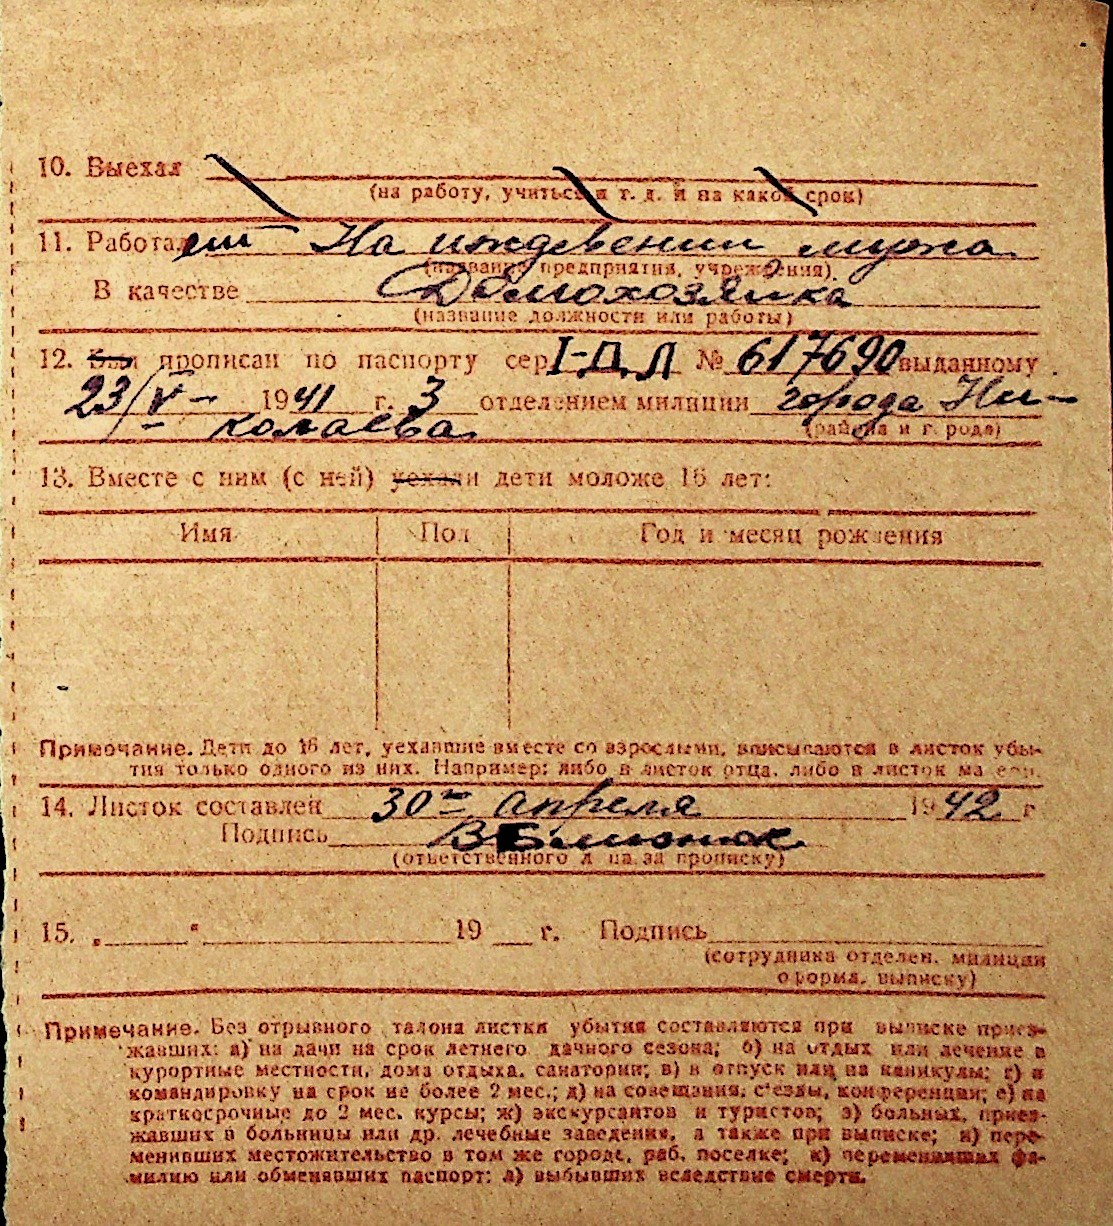 10. Выехал
(на работу, учиться и т. д. и на какой срок)
11. Работает На иждевении мужа
(название предприятия, учреждения)
В качестве Домохозяйка
(название должности или работы)
12. Был прописан по паспорту сер I-ДЛ № 617690 выданному
23/V- 1941 г. 3 отделением милиции города Ни-
колаева (района и города)
13. Вместе с ним (с ней) уехали дети моложе 16 лет:
Имя Пол Год и месяц рождения
Примечание. Дети до 16 лет, уехавшие вместе со взрослыми, вписываются в листок убы-
тия только одного из них. Например: либо в листок отца, либо в листок матери.
14. Листок составлен 30го апреля 1942 г
Подпись
(ответственного лица за прописку)
15. „ “ 19 г. Подпись
(сотрудника отделен. милиции
оформл. выписку)
Примечание. Без отрывного талона листки убытия составляются при выписке приез-
жавших: а) на дачи на срок летнего дачного сезона; б) на отдых или лечение в
курортные местности, дома отдыха, санатории; в) в отпуск или на каникулы; г) в
командировку на срок не более 2 мес.; д) на совещания, с'езды, конференции; е) на
краткосрочные до 2 мес. курсы; ж) экскурсантов и туристов; з) больных, приез-
жавших в больницы или др. лечебные заведения, а также при выписке; и) пере-
менивших местожительство в том же городе, раб. поселке; к) переменивших фа-
милию или обменявших паспорт; л) выбывших вследствие смерти.